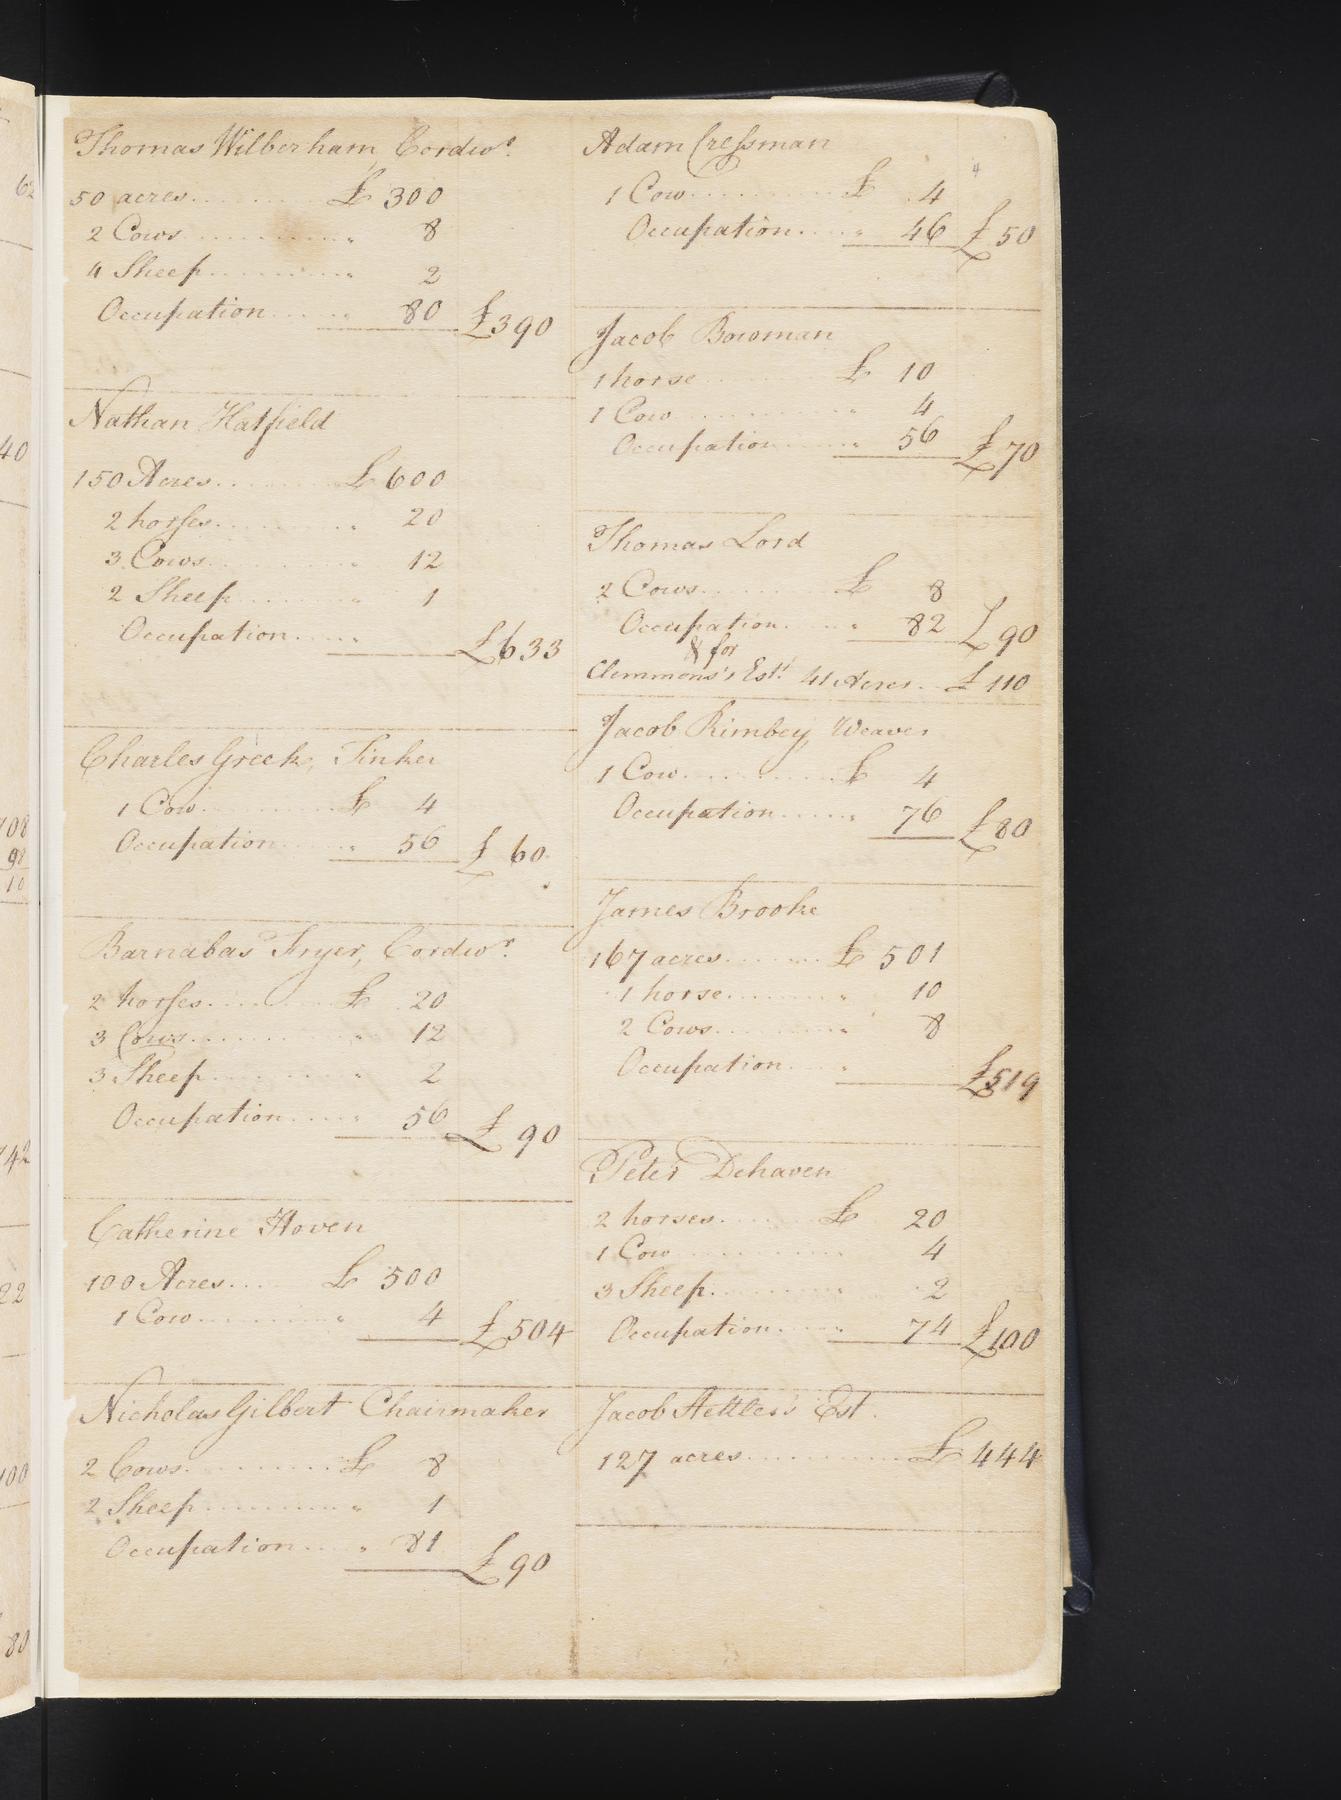 Thomas Wilberham, Cordwr.
50 acres......... £ 300
2 Cows............ " 8
4 Sheep.......... " 2
Occupation..... " 80 £390
Nathan Hatfield
150 Acres........ £ 600
2 horses.......... " 20
3 Cows............ " 12
2 Sheep.......... " 1
Occupation..... " £633
Charles Greek, Tinker
1 Cow............ £ 4
Occupation..... " 56 £ 60
Barnabas Fryer, Cordwr.
2 horses.......... £ 20
3 Cows............ " 12
3 Sheep.......... " 2
Occupation..... " 56 £ 90
Catherine Hoven
100 Acres..... £ 500
1 Cow............ " 4 £504
Nicholas Gilbert Chairmaker
2 Cows............ £ 8
2 Sheep.......... " 1
Occupation..... " 81 £90
4
Adam Cressman
1 Cow............ £ 4
Occupation..... " 46 £50
Jacob Bowman
1 horse.......... £ 10
1 Cow............ " 4
Occupation..... " 56 £70
Thomas Lord
2 Cows............ £ 8
Occupation..... " 82 £90
& for
Clemmons's Est. 41 Acres.. £110
Jacob Rimbey Weaver
1 Cow............ £ 4
Occupation..... " 76 £80
James Brooke
167 acres........ £ 501
1 horse.......... " 10
2 Cows............ " 8
Occupation..... " £519
Peter Dehaven
2 horses.......... £ 20
1 Cow............ " 4
3 Sheep.......... " 2
Occupation..... " 74 £100
Jacob Stettler's Est.
127 acres............ £ 444